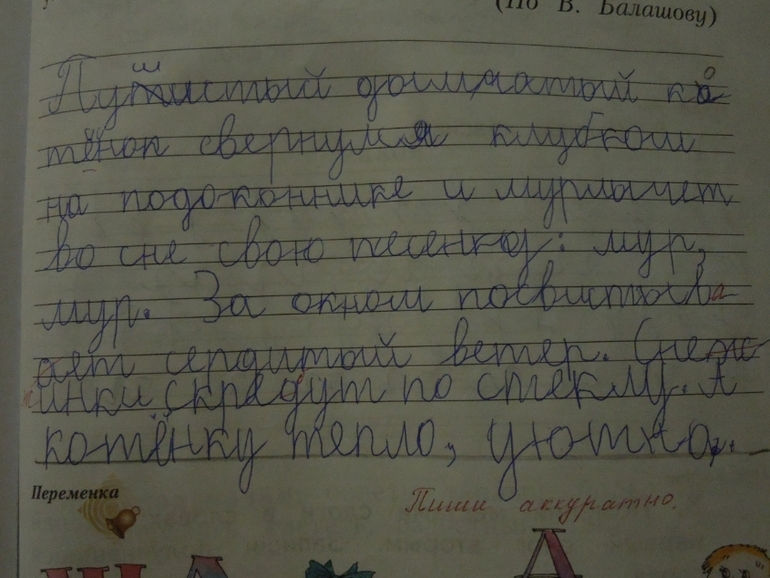 (По В. Балашову)
Пушистый дымчатый ко
тёнок свернулся клубком
на подоконнике и мурлычет
во сне свою песенку: мур,
мур. За окном посвистыва
ает сердитый ветер. Снеж
инки скребут по стеклу. А
котёнку тепло, уютно.
Переменка
Пиши аккуратно.